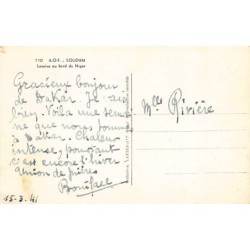 110 A.O.F. - SOUDAN
Laveries au bord du Niger
Gracieux bonjour
de Dakar. Je suis
bien. Voilà une semai-
ne que nous sommes
à Dakar. Chaleur
intense, pourtant
c'est encore l'hiver
Union de prières
Boniface
15-3-41
Mlles Rivière